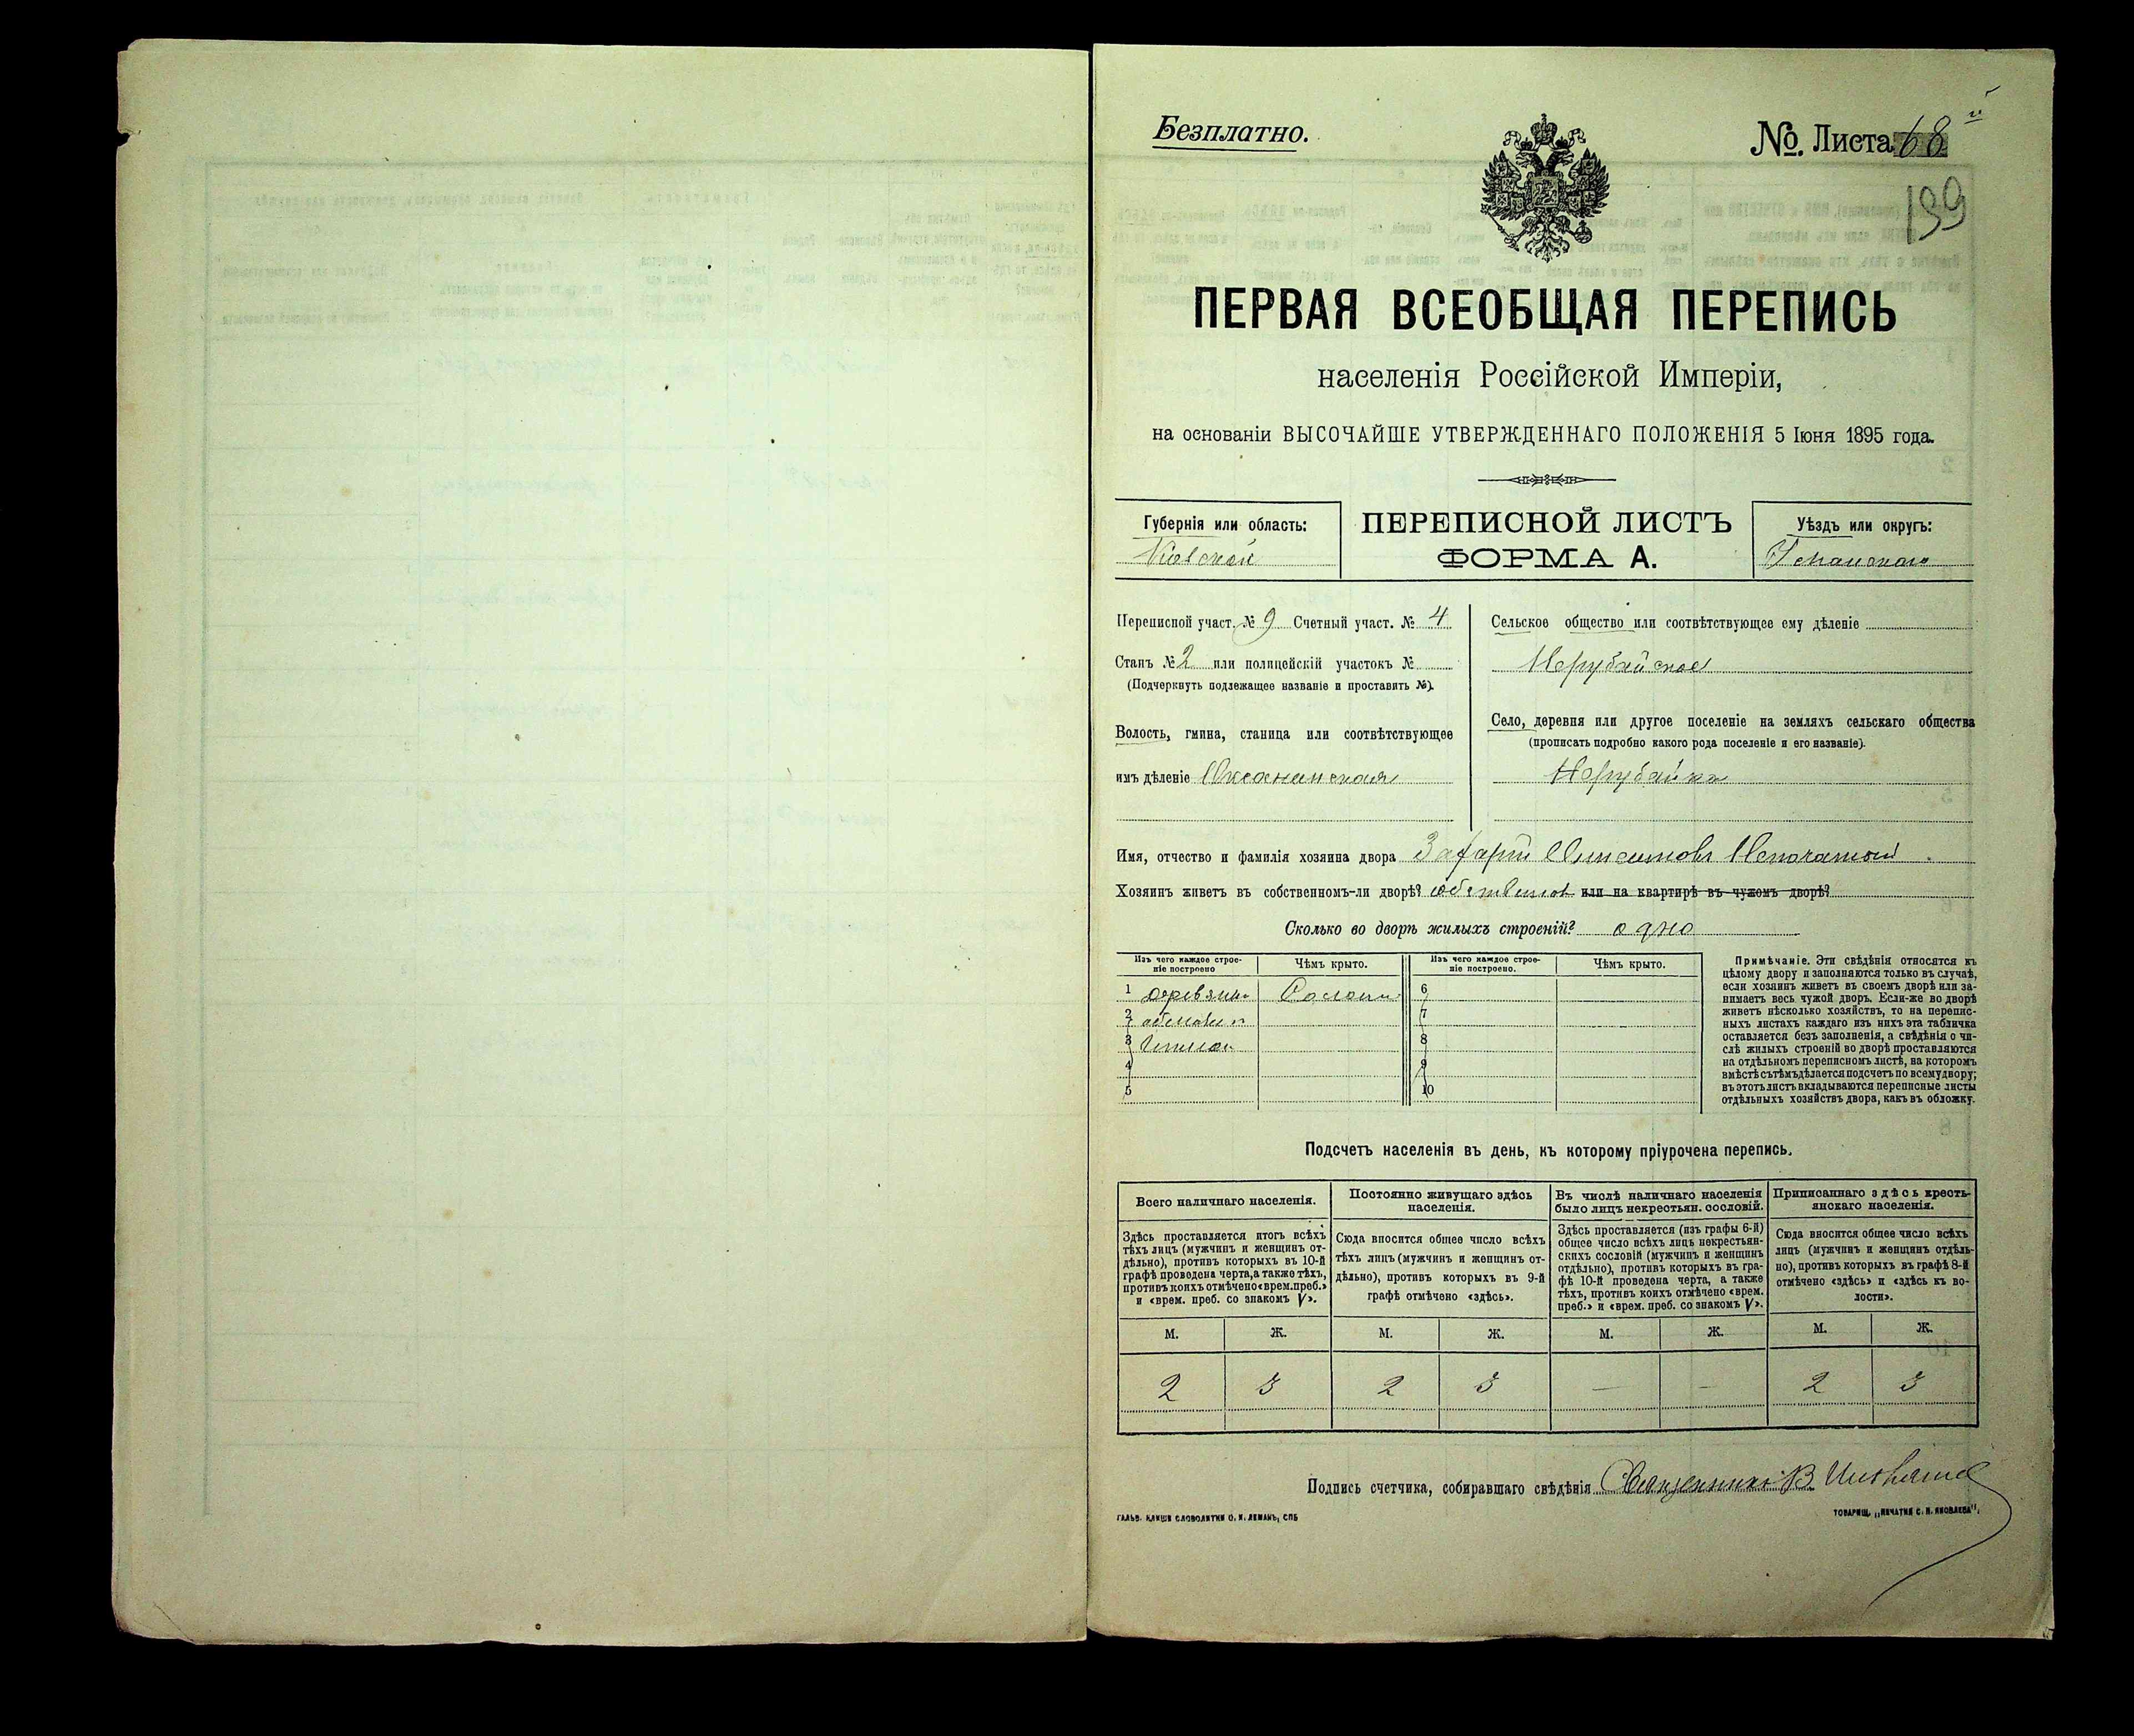 Безплатно.
№. Листа 68 й
139
ПЕРВАЯ ВСЕОБЩАЯ ПЕРЕПИСЬ
населенія Россійской Имперіи,
на основаніи ВЫСОЧАЙШЕ УТВЕРЖДЕННАГО ПОЛОЖЕНІЯ 5 Іюня 1895 года.
Губернія или область:
Кіевской
ПЕРЕПИСНОЙ ЛИСТЪ
ФОРМА А.
Уѣздъ или округъ:
Уманскаго
Переписной участ. № 9 Счетный участ. № 4
Станъ № 2 или полицейскій участокъ №
(Подчеркнуть подлежащее названіе и проставить №).
Волость, гмина, станица или соотвѣтствующее
имъ дѣленіе Оксанинская
Сельское общество или соотвѣтствующее ему дѣленіе
Нерубайское
Село, деревня или другое поселеніе на земляхъ сельскаго общества
(прописать подробно какого рода поселеніе и его названіе).
Нерубайка
Имя, отчество и фамилія хозяина двора Захарій Непочатый
Хозяинъ живетъ въ собственномъ-ли дворѣ? или на квартирѣ въ чужомъ дворѣ?
Сколько во дворѣ жилыхъ строеній? одно
Изъ чего каждое строе-
ніе построено
Чѣмъ крыто.
Изъ чего каждое строе-
ніе построено.
Чѣмъ крыто.
1 деревян. Солом. 6
2 обмазан 7
3 глиною 8
4 9
5 10
Примѣчаніе. Эти свѣдѣнія относятся къ
цѣлому двору и заполняются только въ случаѣ,
если хозяинъ живетъ въ своемъ дворѣ или за-
нимаетъ весь чужой дворъ. Если-же во дворѣ
живетъ нѣсколько хозяйствъ, то на перепис-
ныхъ листахъ каждаго изъ нихъ эта табличка
оставляется безъ заполненія, а свѣдѣнія о чи-
слѣ жилыхъ строеній во дворѣ проставляются
на отдѣльномъ переписномъ листѣ, на которомъ
вмѣстѣ съ тѣмъ дѣлается подсчетъ по всему двору;
въ этотъ листъ вкладываются переписные листы
отдѣльныхъ хозяйствъ двора, какъ въ обложку.
Подсчетъ населенія въ день, къ которому пріурочена перепись.
Всего наличнаго населенія.
Здѣсь проставляется итогъ всѣхъ
тѣхъ лицъ (мужчинъ и женщинъ от-
дѣльно), противъ которыхъ въ 10-й
графѣ проведена черта, а также тѣхъ,
противъ коихъ отмѣчено «врем. преб.»
и «врем. преб. со знакомъ V».
Постоянно живущаго здѣсь
населенія.
Сюда вносится общее число всѣхъ
тѣхъ лицъ (мужчинъ и женщинъ от-
дѣльно), противъ которыхъ въ 9-й
графѣ отмѣчено «здѣсь».
Въ числѣ наличнаго населенія
было лицъ некрестьян. сословій.
Здѣсь проставляется (изъ графы 6-й)
общее число всѣхъ лицъ некрестьян-
скихъ сословій (мужчинъ и женщинъ
отдѣльно), противъ которыхъ въ гра-
фѣ 10-й проведена черта, а также
тѣхъ, противъ коихъ отмѣчено «врем.
преб.» и «врем. преб. со знакомъ V».
Приписаннаго здѣсь кресть-
янскаго населенія.
Сюда вносится общее число всѣхъ
лицъ (мужчинъ и женщинъ отдѣль-
но), противъ которыхъ въ графѣ 8-й
отмѣчено «здѣсь» и «здѣсь къ во-
лости».
М. Ж. М. Ж. М. Ж. М. Ж.
2 3 2 3 — — 2 3
Подпись счетчика, собиравшаго свѣдѣнія Священникъ В.
ГАЛЬВ. КЛИШЕ СЛОВОЛИТНИ О. И. ЛЕМАНЪ, СПБ
ТОВАРИЩ. „ПЕЧАТНЯ С. П. ЯКОВЛЕВА".